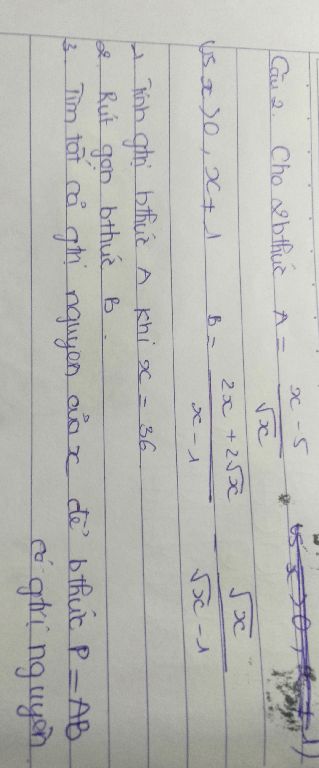 Câu 2. Cho 2 bthức A = x - 5 / √x
B = 2x + 2√x / x - 1 - √x / √x - 1
vs x > 0, x ≠ 1
1. Tính gtrị bthức A khi x = 36
2. Rút gọn bthức B.
3. Tìm tất cả gtrị nguyên của x để bthức P = AB
có gtrị nguyên